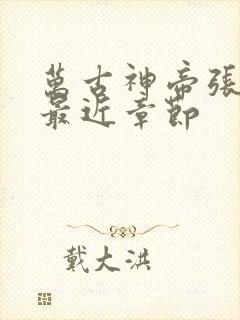 萬古神帝張
最近章節
戴大洪